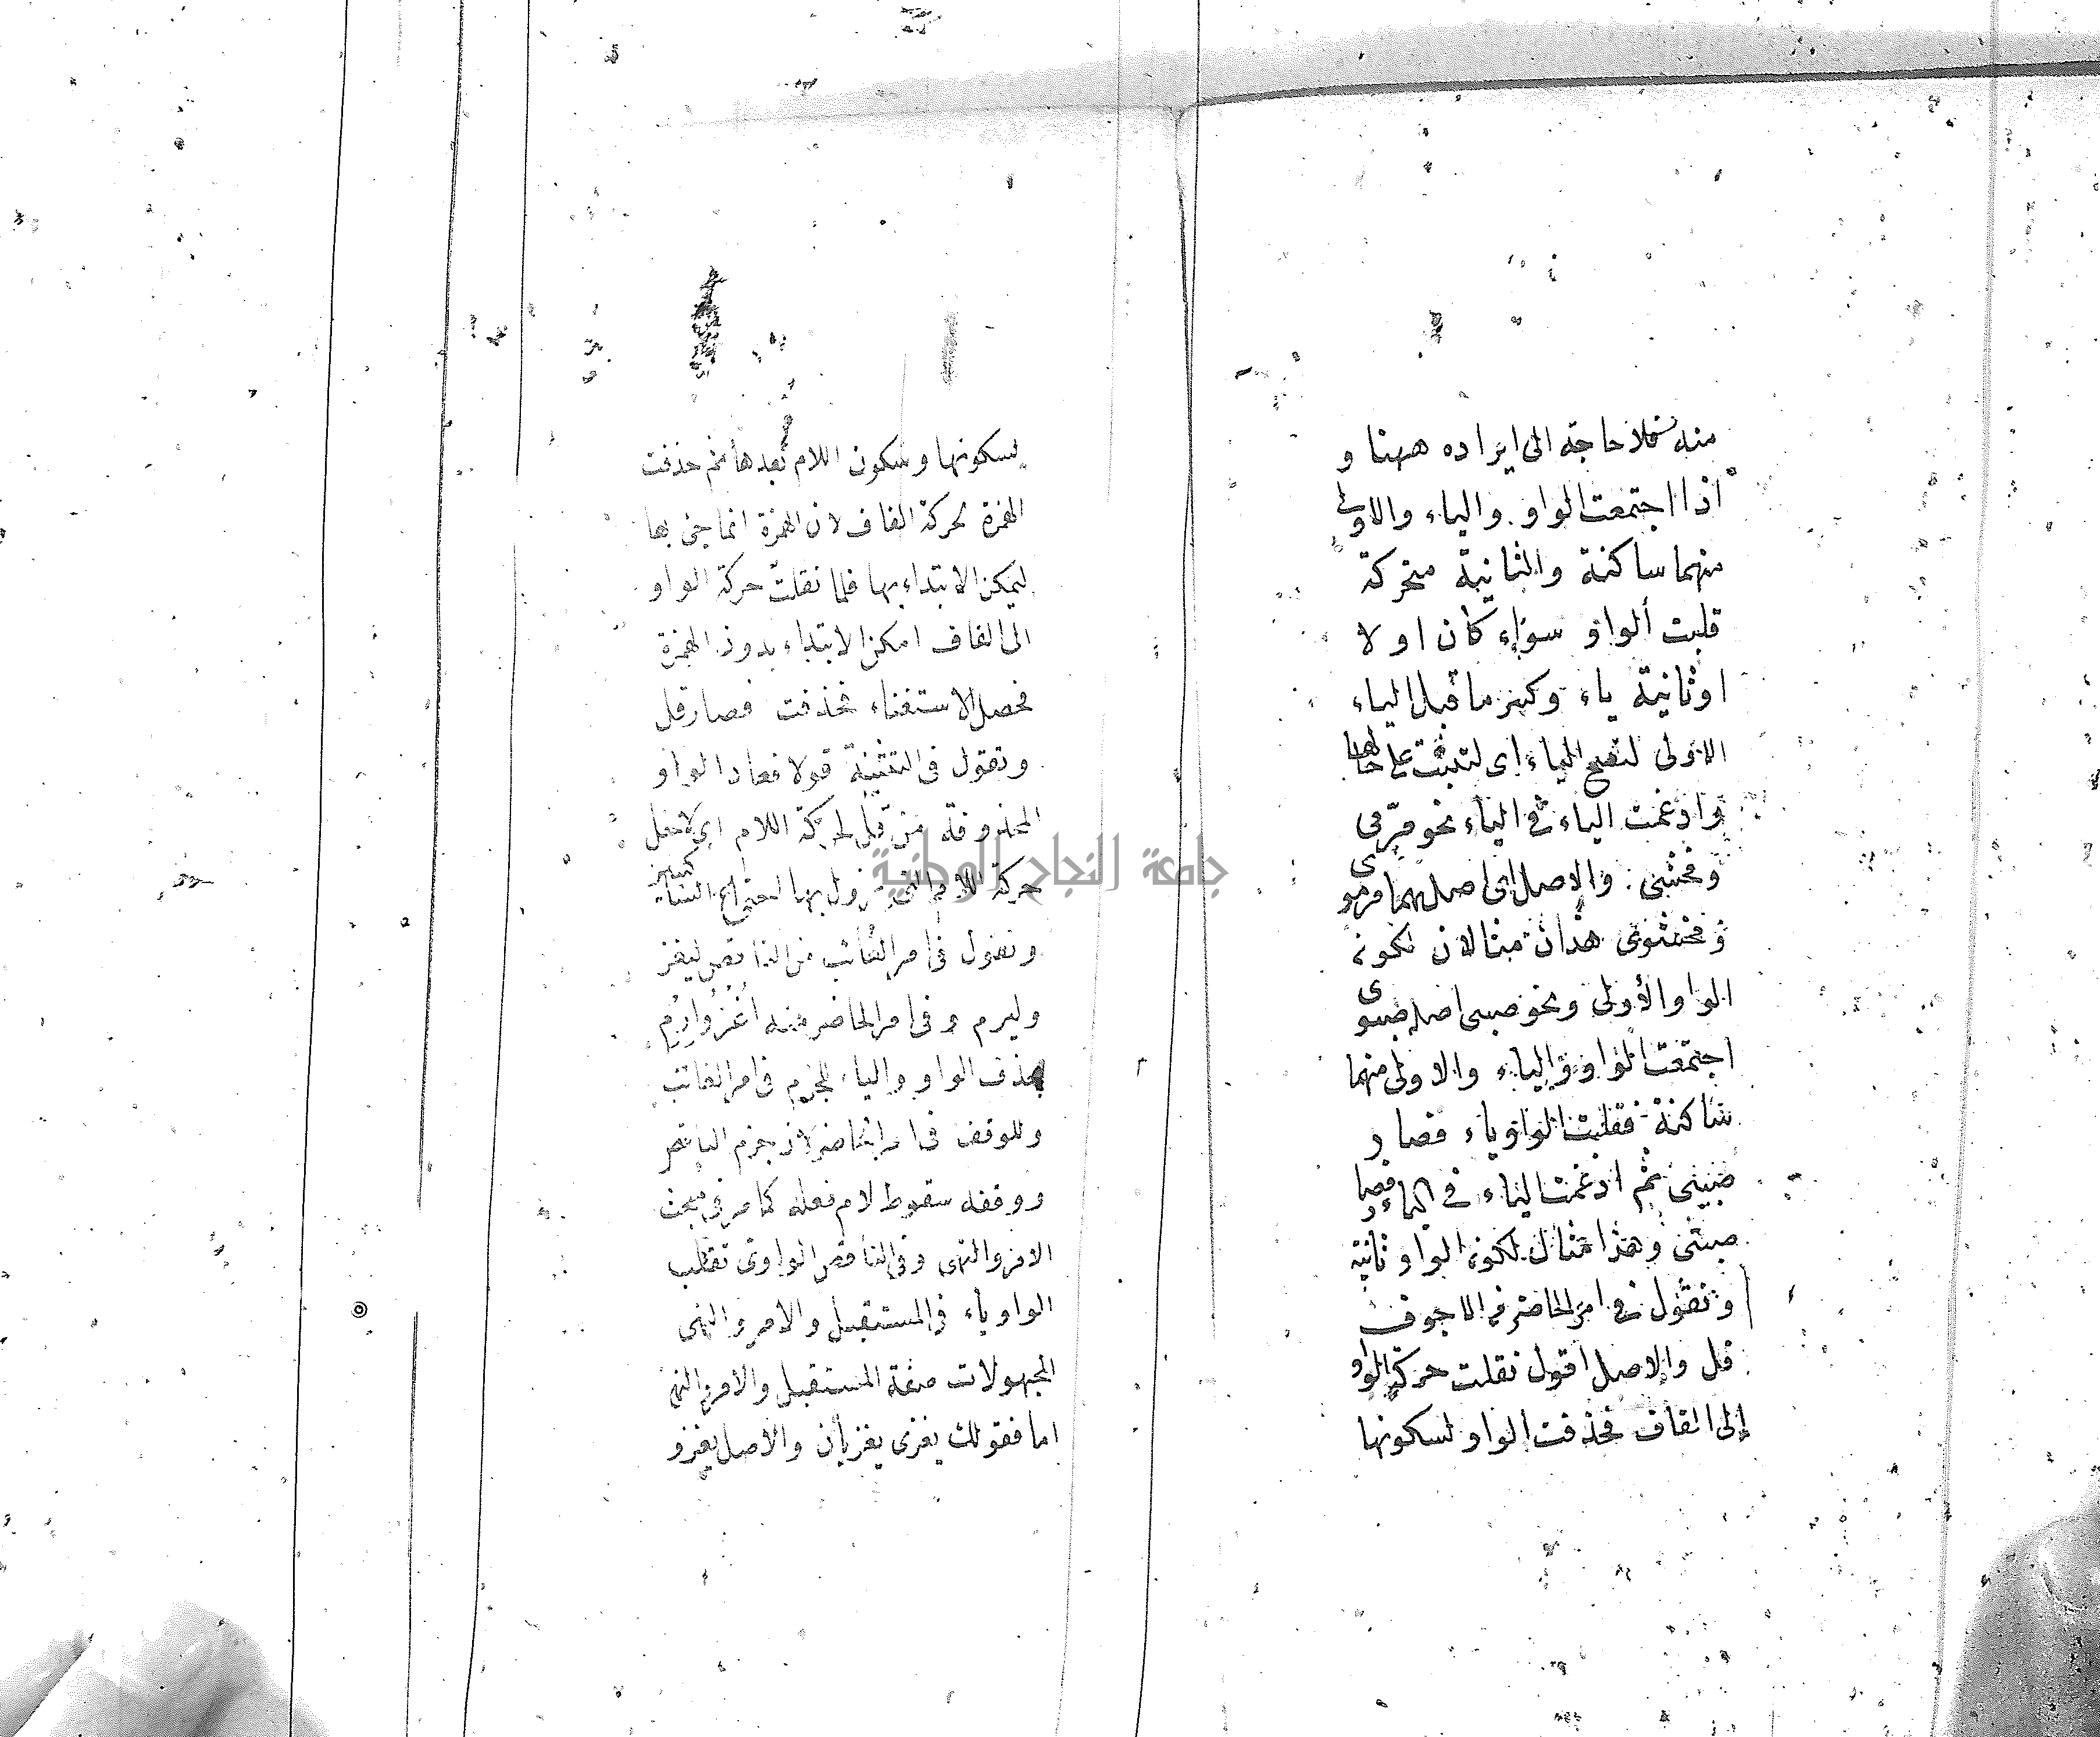 منه فلا حاجة الى ايراده ههنا و
اذا اجتمعت الواو والياء والاولى
منهما ساكنة والثانية متحركة
قلبت الواو سواء كان اولا
او ثانية ياء وكسر ما قبل الياء
الاولى لتصح الياء اى لتثبت على حالها
وادغمت الياء في الياء نحو مرمى
ومخشى والاصل اى اصلهما مرموى
ومخشوى هذان مثالان لكون
الواو الأولى ونحو صبى اصله صبوى
اجتمعت الواو والياء والاولى منهما
ساكنة فقلبت الواو ياء فصار
صبيى ثم ادغمت الياء في الياء فصار
صبى وهذا مثال لكون الواو ثانية
وتقول في امر الحاضر من الاجوف
قل والاصل اقول نقلت حركة الواو
إلى القاف فحذفت الواو لسكونها
لسكونها وسكون اللام بعدها ثم حذفت
الهمزة لحركة القاف لان الهمزة انما جئ بها
ليمكن الابتداء بها فلما نقلت حركة الواو
الى القاف امكن الابتداء بدون الهمزة
فحصل الاستغناء فحذفت فصار قل
وتقول فى التثنية قولا فعاد الواو
المحذوفة من قل لحركة اللام اى لاجل
حركة اللام التى يزول بها اجتماع الساكنين
وتقول فى امر الغائب من الناقص ليغز
وليرم وفى امر الحاضر منه اُغْزُ وارْمِ
بحذف الواو والياء للجزم فى امر الغائب
وللوقف فى امر الحاضر لان جزم الناقص
ووقفه سقوط لام فعله كما مر فى مبحث
الامر والنهى وفى الناقص الواوى تقلب
الواو ياء فى المستقبل والامر والنهى
المجهولات صفة المستقبل والامر والنهى
اما فقولك يغزى يغزيان والأصل يغزو
جامعة النجاح الوطنية